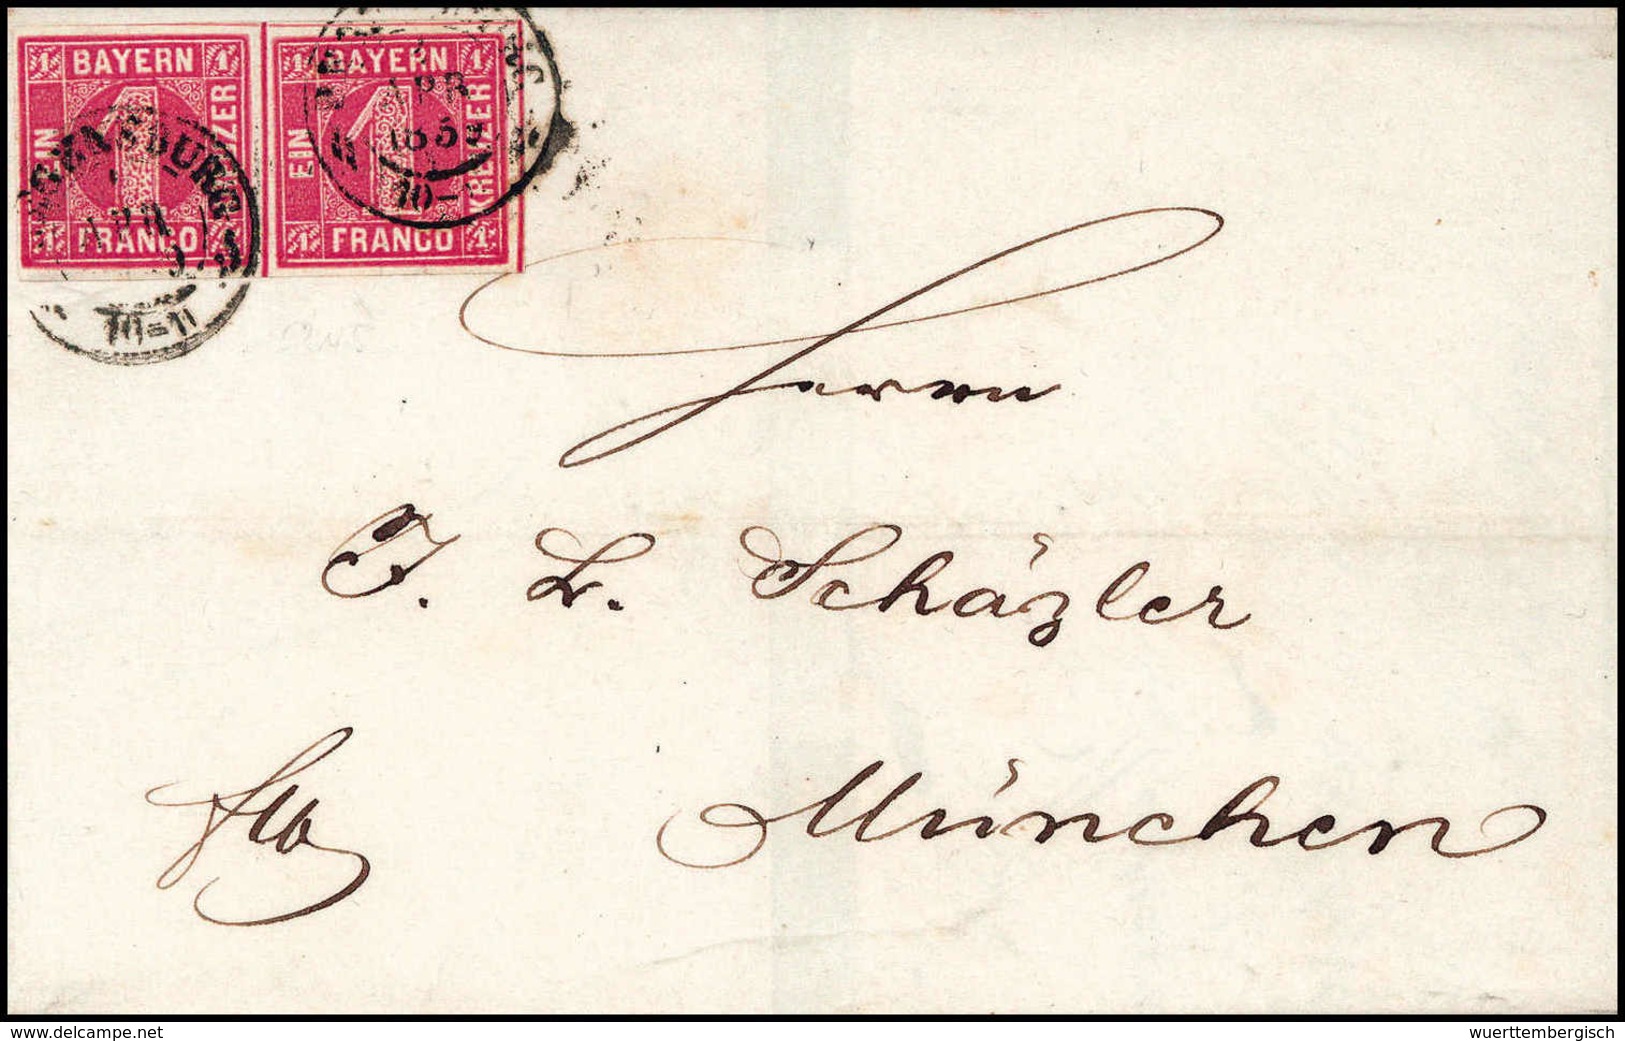 1 BAYERN 1
EIN
KREUZER
1 FRANCO 1
1 BAYERN 1
EIN
KREUZER
1 FRANCO 1
REGENSBURG
APR
10-11
APR
1859
10-
Herrn
J. L. Schäzler
fro
München
delcampe.net
wuerttembergisch